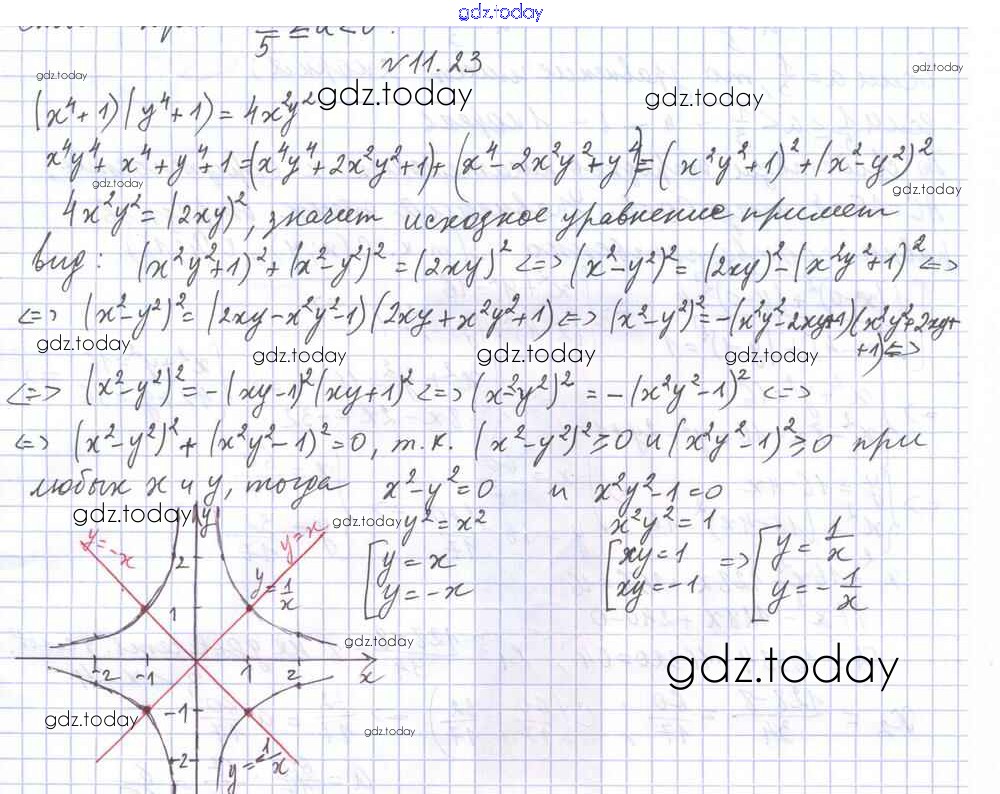 gdz.today
5 ≤ a < 0.
№11.23
gdz.today gdz.today
(x⁴+1)(y⁴+1)=4x²y² gdz.today gdz.today
x⁴y⁴+x⁴+y⁴+1=(x⁴y⁴+2x²y²+1)+(x⁴-2x²y²+y⁴)=(x²y²+1)²+(x²-y²)²
gdz.today gdz.today
4x²y²=(2xy)², значит исходное уравнение примет
вид: (x²y²+1)²+(x²-y²)²=(2xy)² <=> (x²-y²)²=(2xy)²-(x²y²+1)² <=>
<=> (x²-y²)²=(2xy-x²y²-1)(2xy+x²y²+1) <=> (x²-y²)²=-(x²y²-2xy+1)(x²y²+2xy+
+1) <=>
gdz.today gdz.today gdz.today gdz.today
<=> (x²-y²)²=-(xy-1)²(xy+1)² <=> (x²-y²)²=-(x²y²-1)² <=>
<=> (x²-y²)²+(x²y²-1)²=0, т.к. (x²-y²)²≥0 и (x²y²-1)²≥0 при
любых x и y, тогда x²-y²=0 и x²y²-1=0
gdz.today gdz.today y²=x² x²y²=1
[y=x [xy=1 => [y=1/x
y=-x xy=-1 y=-1/x
y
y=-x y=x
2
y=1/x
1
gdz.today
-2 -1 1 2 x
gdz.today
-1
gdz.today gdz.today
-2
y=-1/x